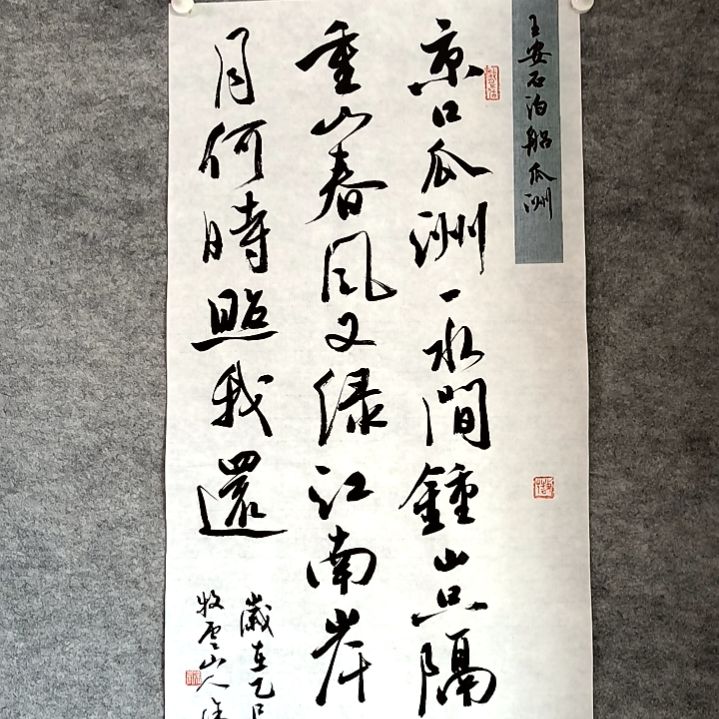 王安石泊船瓜洲
京口瓜洲一水間鍾山只隔
重山春風又緑江南岸
月何時照我還
歲在乙
牧雲山人